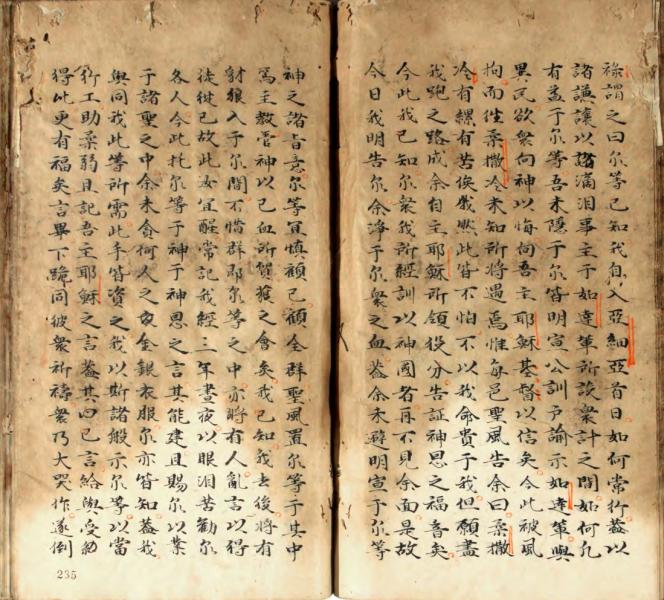 祿謂之曰尔等已知我自入亞細亞首日如何常行葢以
諸謙讓以諸滴泪事主于如達軰所設衆計之間如何凡
有益于尔等吾未隱于尔皆明宣公訓戶諭示如達軰與
異民欲衆向神以悔向吾主耶穌基督以信矣今此被風
拘而徃柔撒冷未知所將遇焉惟每邑聖風告余曰柔撒
冷有縲有苦俟我然此皆不怕不以我命貴于我但願盡
我跑之路成余自主耶穌所領役分告証神恩之福音矣
今此我已知尔衆我所經訓以神國者再不見余面是故
今日我明告尔余淨于尔衆之血葢余未避明宣于尔等
神之諸旨意尔等宜慎顧己顧全群聖風置尔等于其中
焉主教管神以己血所貿獲之會矣我已知我去後將有
豺狼入于尔間不惜群即尔等之中亦將有人亂言以得
徒從己故此汝宜醒常記我經三年晝夜以眼泪苦勸尔
各人今此托尔等于神于神恩之言其能建且賜尔以業
于諸聖之中余未貪何人之金銀衣服尔亦皆知葢我
與同我此等所需此手皆資之我以斯諸般示尔等以當
行工助柔弱且記吾主耶穌之言葢其曰已言給與受
得此更有福矣言畢下跪同彼衆祈禱衆乃大哭作遂倒
235